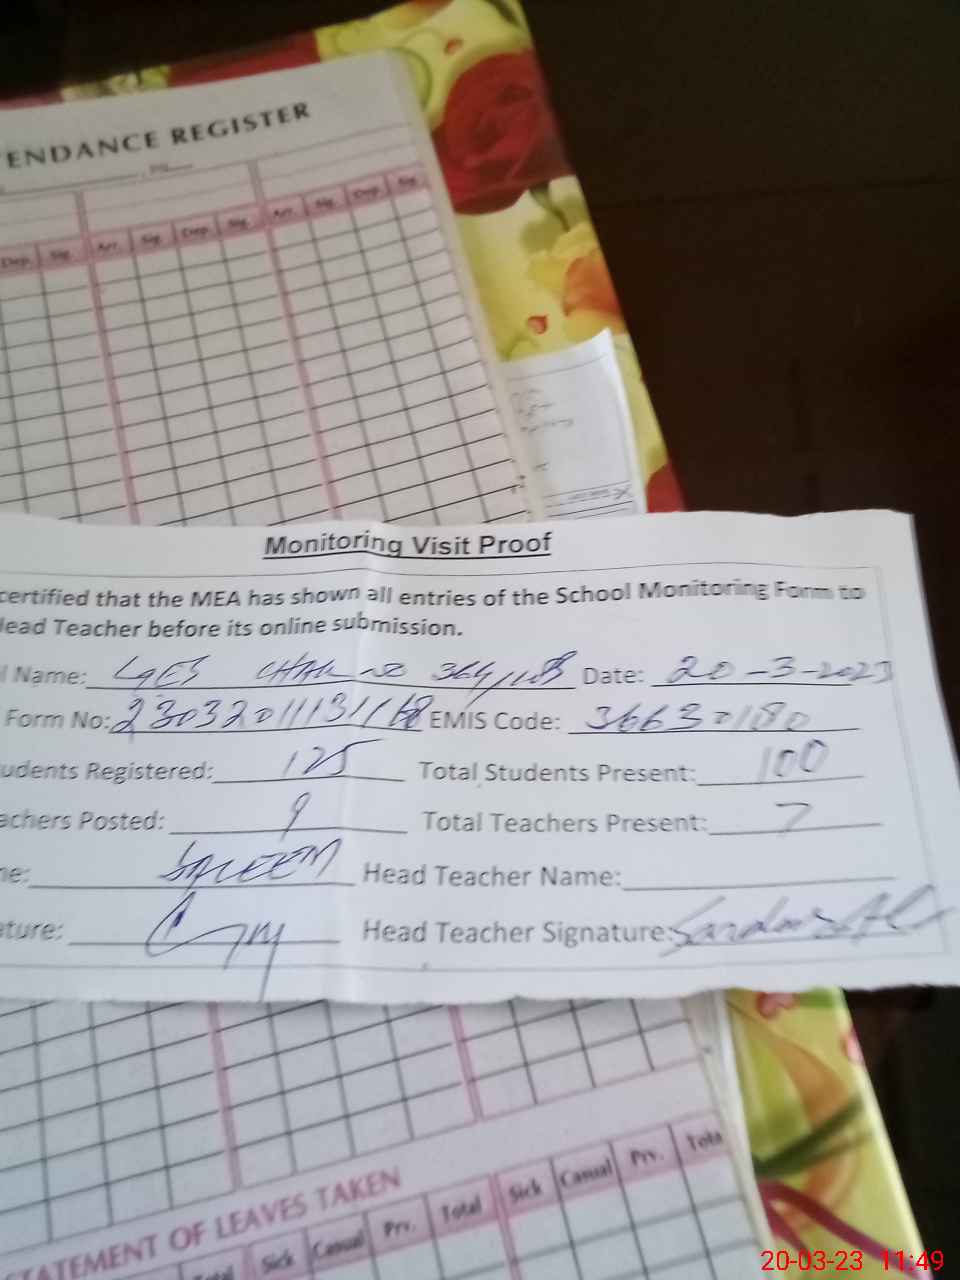 TENDANCE REGISTER
Dep. Sig. Arr. Sig. Dep. Sig. Arr. Sig. Dep. Sig.
Monitoring Visit Proof
certified that the MEA has shown all entries of the School Monitoring Form to
Head Teacher before its online submission.
l Name: GES CHAK NO 364/WB Date: 20-3-2023
Form No: EMIS Code: 36630180
udents Registered: 125 Total Students Present: 100
achers Posted: 9 Total Teachers Present: 7
ne: SALEEM Head Teacher Name:
ature: Head Teacher Signature:
STATEMENT OF LEAVES TAKEN
Total Sick Casual Prv. Total Sick Casual Prv. Tota
20-03-23 11:49